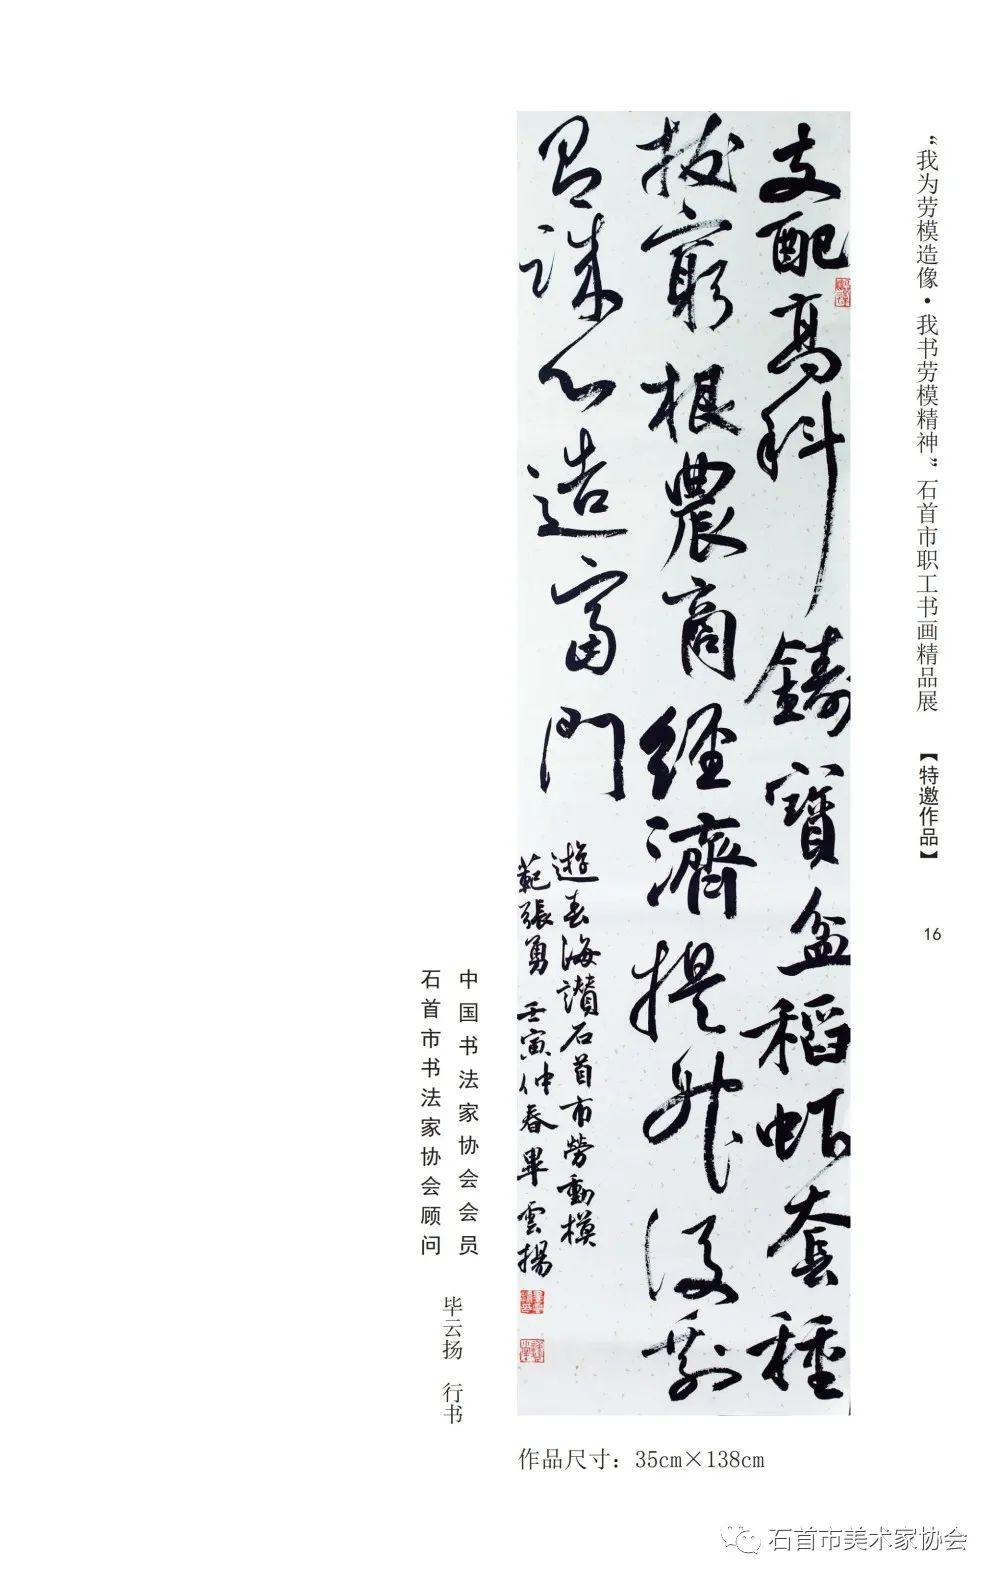 “我为劳模造像·我书劳模精神”石首市职工书画精品展 【特邀作品】 16
支配高科鑄寶盆稻虾套種
拔窮根農商經濟提升
心造富門
遊海讃石首市勞動模
範張勇 壬寅仲春畢雲揚
中国书法家协会会员
石首市书法家协会顾问
毕云扬 行书
作品尺寸：35cm×138cm
石首市美术家协会